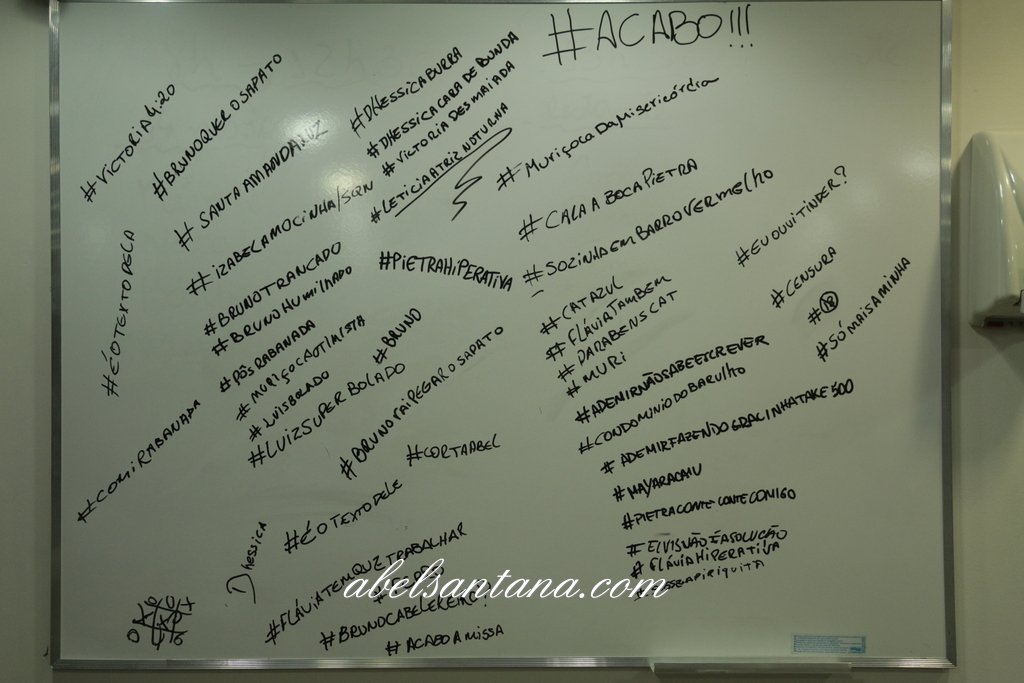 #ACABO!!!
#VICTORIA4:20
#BRUNOQUEROSAPATO
#SANTAAMANDARUIZ
#DHESSICABURRA
#DHESSICACARADEBUNDA
#VICTORIADESMAIADA
#LETICIAATRIZNOTURNA
#MURIÇOCADAMISERICÓRDIA
#IZABELAMOCINHA/SQN
#CALAABOCAPIETRA
#SOZINHAEMBARROVERMELHO
#EUOUVITINDER?
#ÉOTEXTODELA
#BRUNOTRANCADO
#BRUNOHUMILHADO
#PIETRAHIPERATIVA
#CATAZUL
#FLÁVIATAMBEM
#PARABENSCAT
#MURI
#CENSURA
#18
#SÓMAISAMINHA
#PÓSRABANADA
#MURIÇOCAOTIMISTA
#BRUNO
#LUISBOLADO
#LUIZSUPERBOLADO
#BRUNOVAIPEGAROSAPATO
#ADEMIRNÃOSABEETCREVER
#CONDOMINIODOBARULHO
#ADEMIRFAZENDOGRACINHATAKE500
#COMIRABANADA
#CORTAABEL
#MAYARACAIU
#PIETRACONTECONTECOMIGO
#ÉOTEXTODELE
#ELVISNÃOÉASOLUÇÃO
#FLÁVIAHIPERATIVA
DHESSICA
#FLÁVIATEMQUZTRABALHAR
abelsantana.com
#BRUNOCABELEREIRO?
#ACABOAMISSA